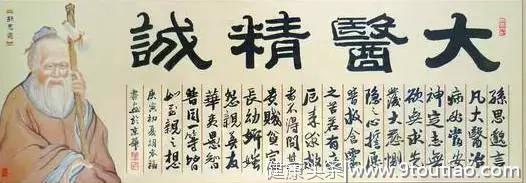 大醫精誠
孫思邈言
凡大醫治
病必當安
神定志無
欲無求先
發大慈惻
隱心誓愿
普救含靈
之苦若有疾
厄來求救
者不得問其
貴賤貧富
長幼妍
怨親善友
華夷愚智
普同一等皆
如至親之想
庚寅初夏胡
書於京華
孫思邈
健康头条 www.9toutiao.com